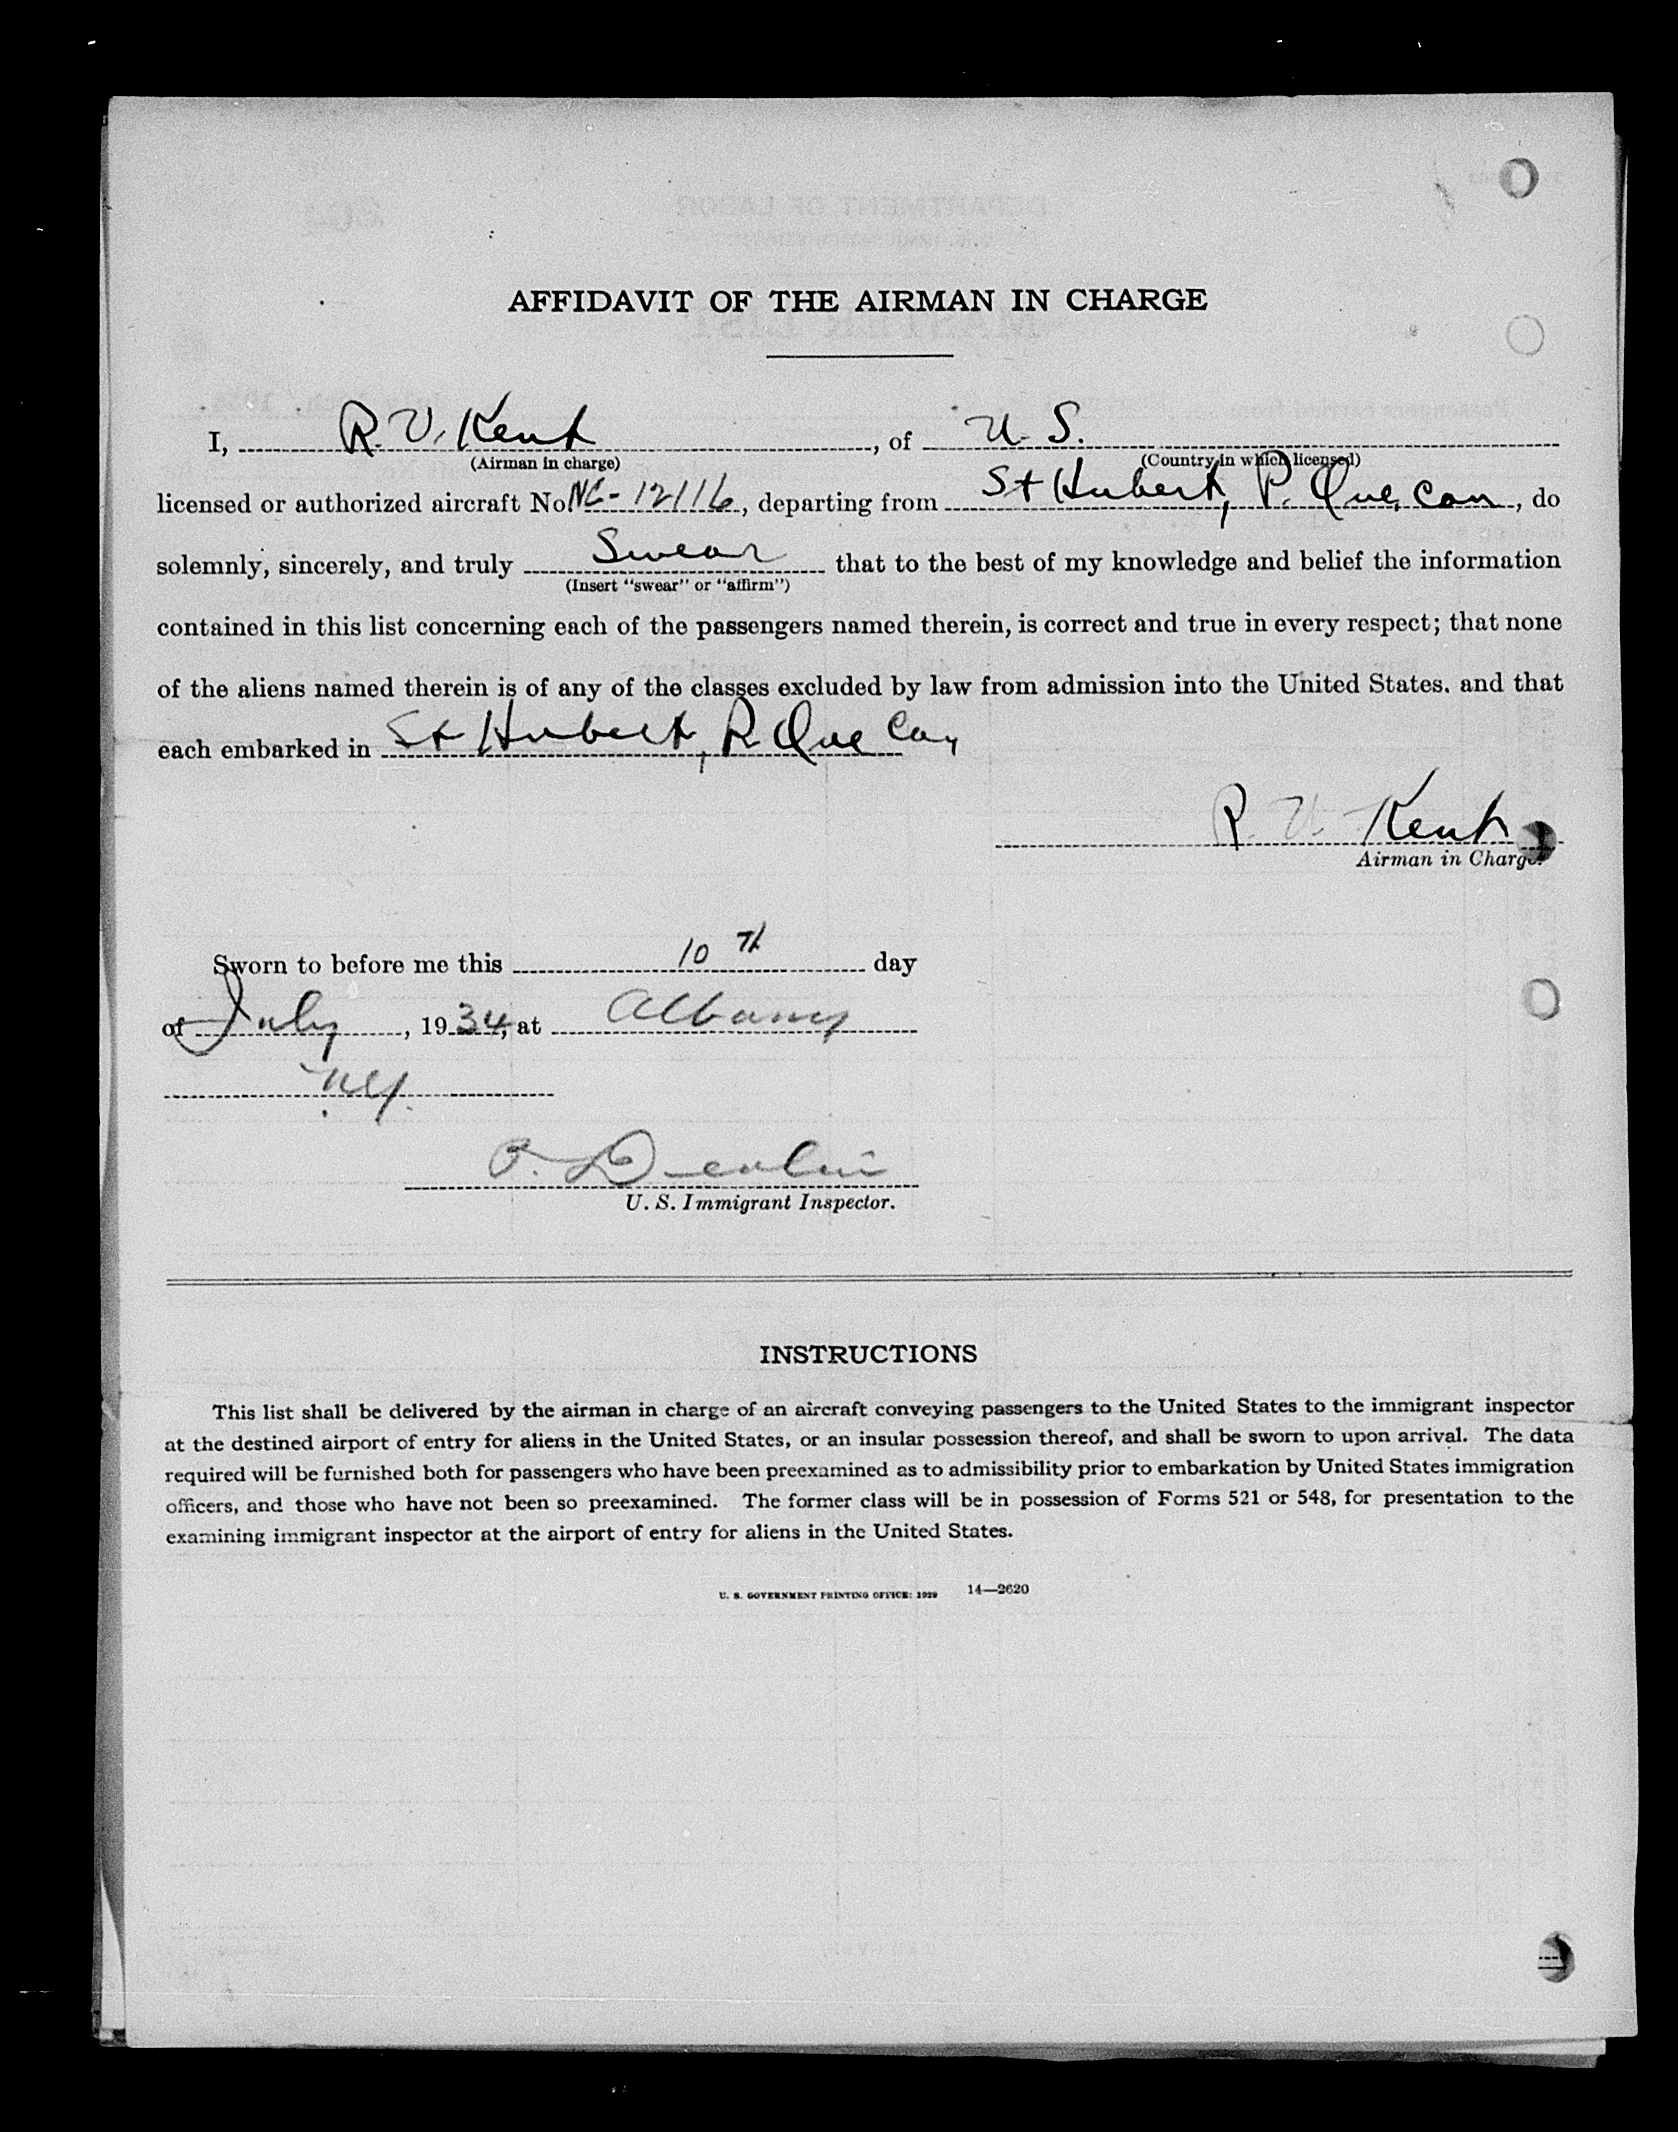 AFFIDAVIT OF THE AIRMAN IN CHARGE
I, R. V. Kent, of U. S.
(Airman in charge) (Country in which licensed)
licensed or authorized aircraft No. NC-12116, departing from St Hubert, P. Que, Can, do
solemnly, sincerely, and truly Swear that to the best of my knowledge and belief the information
(Insert "swear" or "affirm")
contained in this list concerning each of the passengers named therein, is correct and true in every respect; that none
of the aliens named therein is of any of the classes excluded by law from admission into the United States. and that
each embarked in St Hubert, P. Que Can
R. V. Kent
Airman in Charge.
Sworn to before me this 10 th day
of July, 1934, at Albany
N.Y.
U. S. Immigrant Inspector.
INSTRUCTIONS
This list shall be delivered by the airman in charge of an aircraft conveying passengers to the United States to the immigrant inspector
at the destined airport of entry for aliens in the United States, or an insular possession thereof, and shall be sworn to upon arrival. The data
required will be furnished both for passengers who have been preexamined as to admissibility prior to embarkation by United States immigration
officers, and those who have not been so preexamined. The former class will be in possession of Forms 521 or 548, for presentation to the
examining immigrant inspector at the airport of entry for aliens in the United States.
U. S. GOVERNMENT PRINTING OFFICE: 1929 14—2620